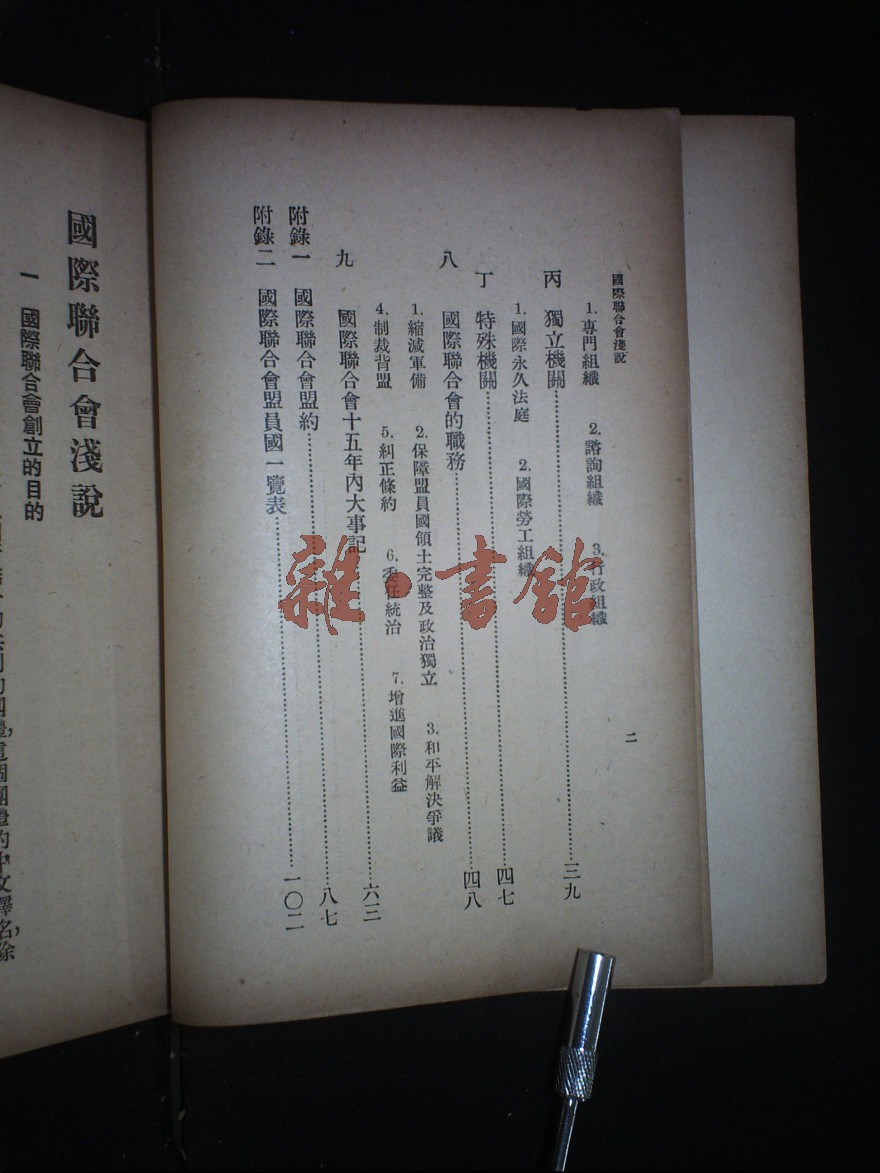 國際聯合會淺說
二
1. 專門組織 2. 諮詢組織 3. 行政組織
丙 獨立機關……三九
1. 國際永久法庭 2. 國際勞工組織
丁 特殊機關……四七
八 國際聯合會的職務……四八
1. 縮減軍備 2. 保障盟員國領土完整及政治獨立 3. 和平解決爭議
4. 制裁背盟 5. 糾正條約 6. 委任統治 7. 增進國際利益
九 國際聯合會十五年內大事記……六三
附錄一 國際聯合會盟約……八七
附錄二 國際聯合會盟員國一覽表……一〇二
國際聯合會淺說
一 國際聯合會創立的目的
這個團體的中文譯名,除
雜·書館